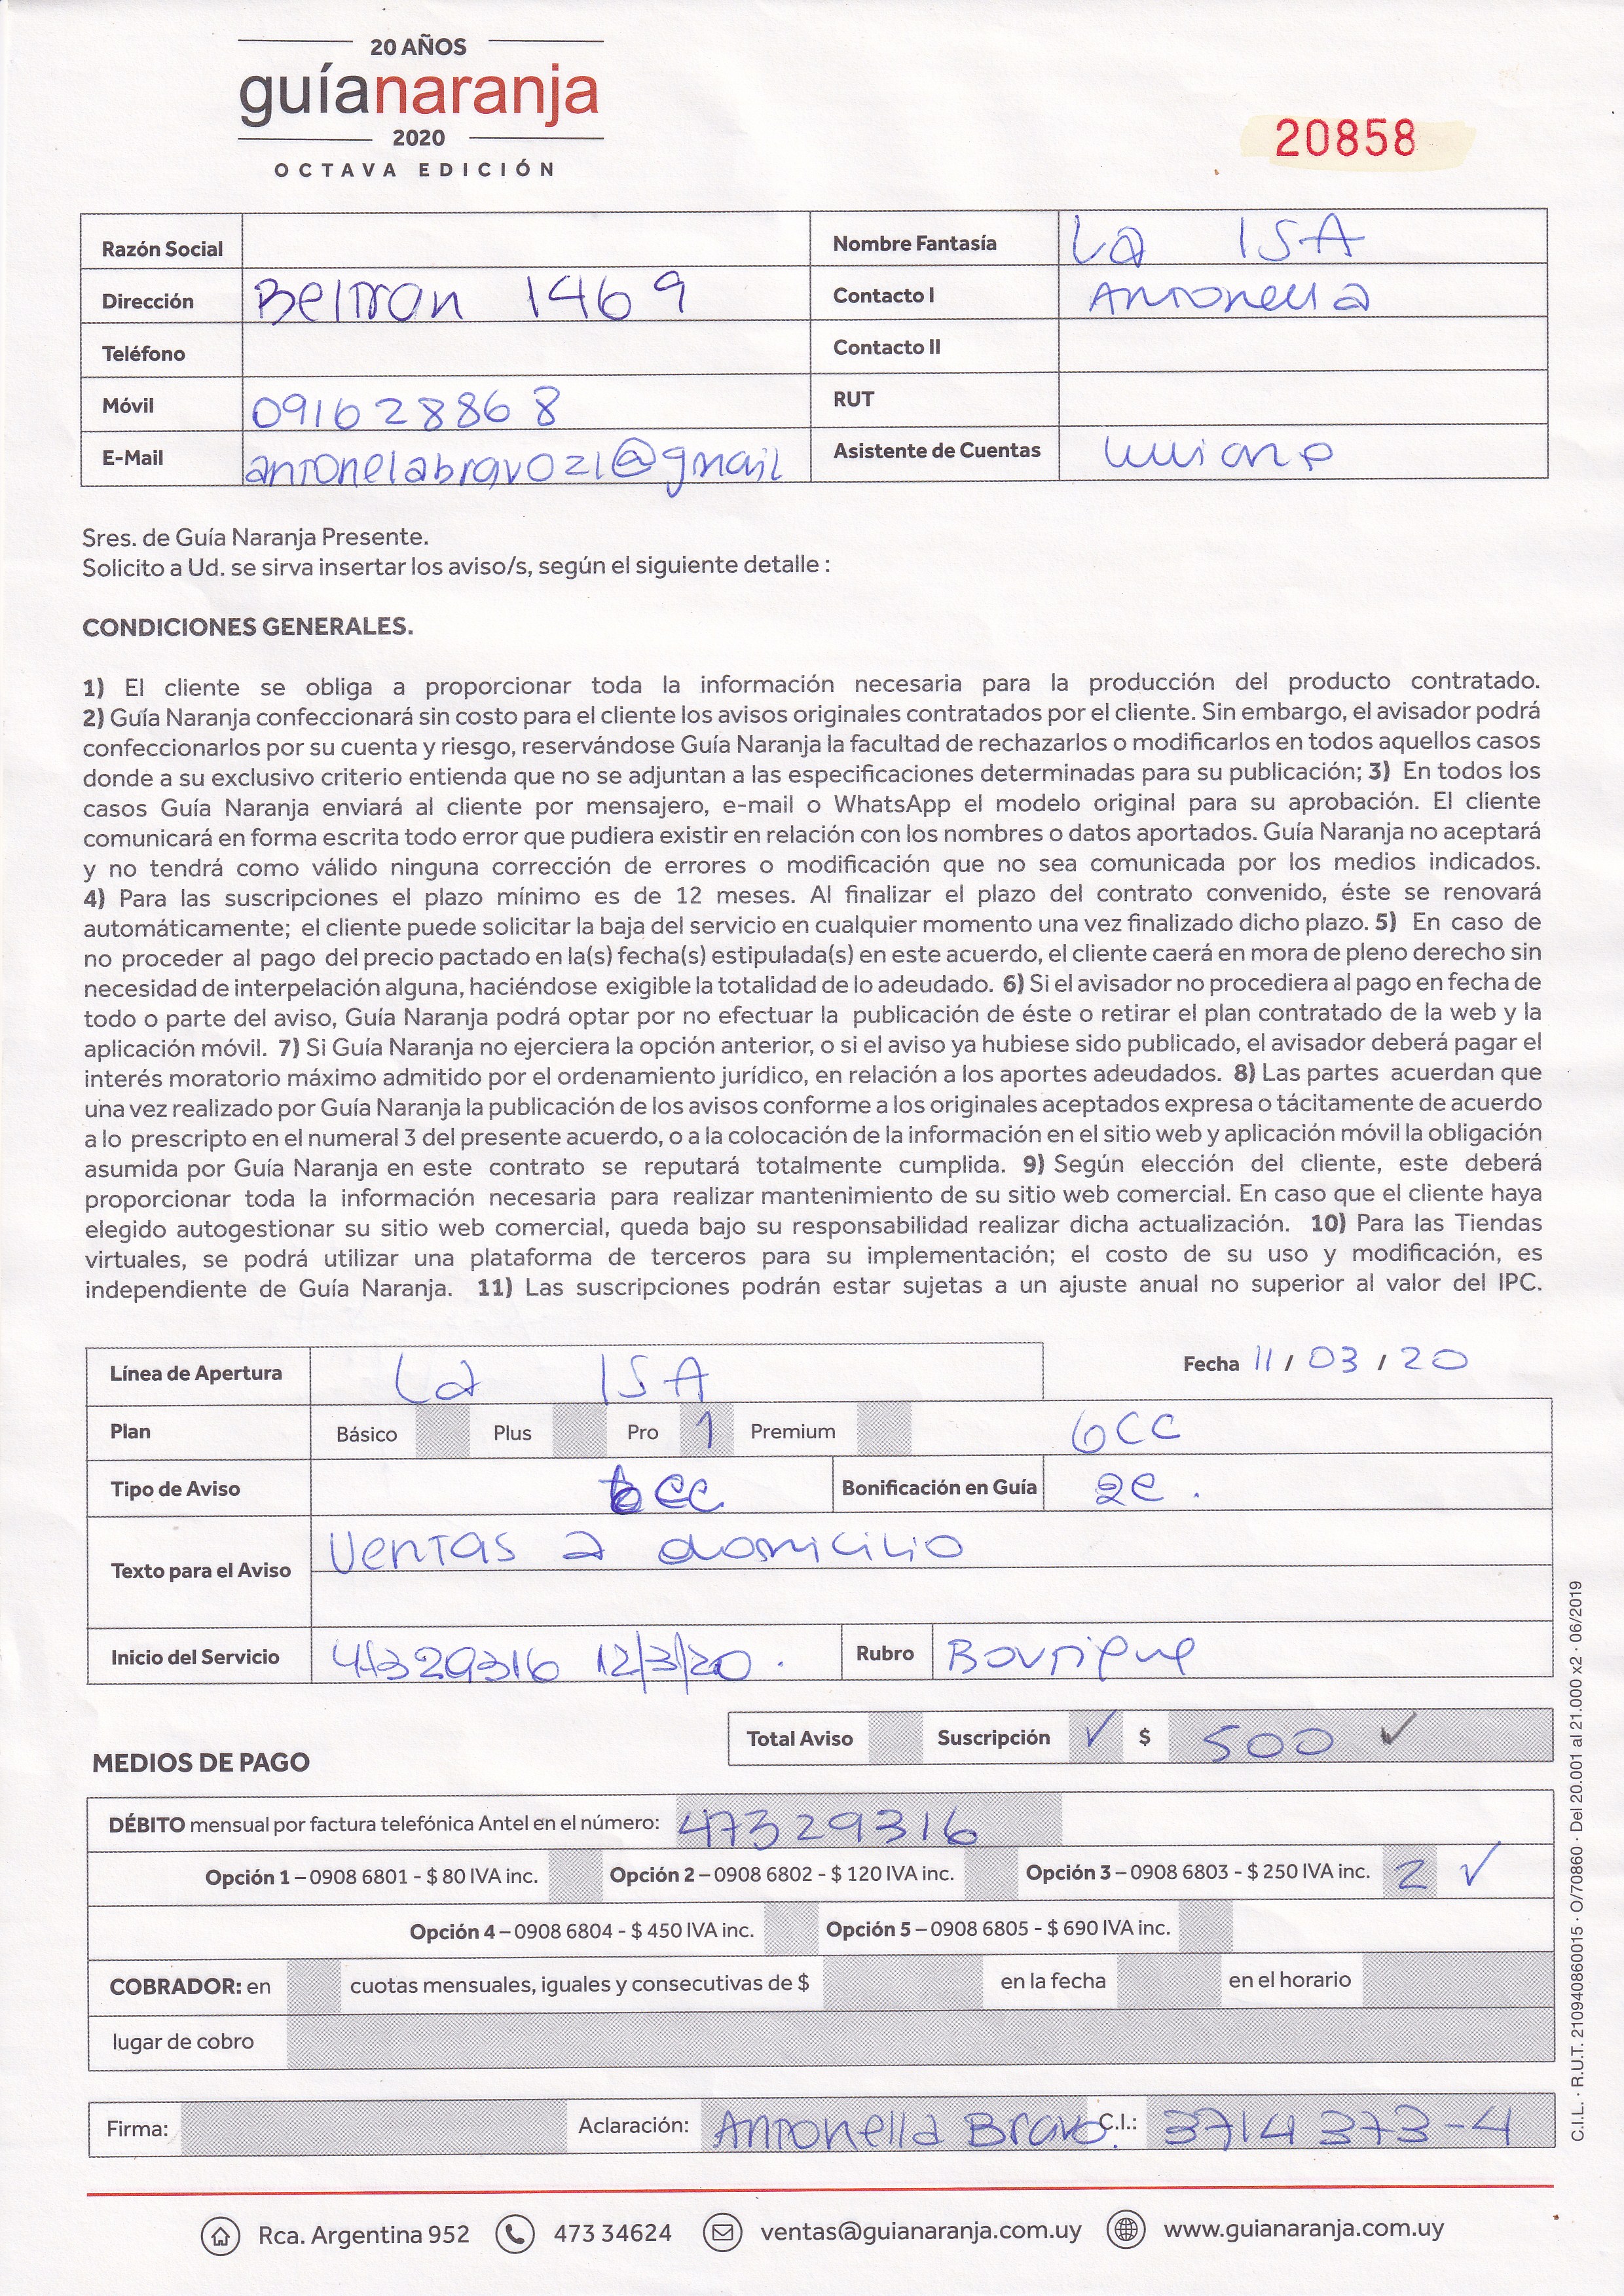 20 AÑOS
guíanaranja
2020
OCTAVA EDICIÓN
20858
Razón Social
Nombre Fantasía La ISA
Dirección Beltran 1469
Contacto I Antonella
Teléfono
Contacto II
Móvil 091628868
RUT
E-Mail antonelabravo21@gmail
Asistente de Cuentas
Sres. de Guía Naranja Presente.
Solicito a Ud. se sirva insertar los aviso/s, según el siguiente detalle :
CONDICIONES GENERALES.
1) El cliente se obliga a proporcionar toda la información necesaria para la producción del producto contratado.
2) Guía Naranja confeccionará sin costo para el cliente los avisos originales contratados por el cliente. Sin embargo, el avisador podrá
confeccionarlos por su cuenta y riesgo, reservándose Guía Naranja la facultad de rechazarlos o modificarlos en todos aquellos casos
donde a su exclusivo criterio entienda que no se adjuntan a las especificaciones determinadas para su publicación; 3) En todos los
casos Guía Naranja enviará al cliente por mensajero, e-mail o WhatsApp el modelo original para su aprobación. El cliente
comunicará en forma escrita todo error que pudiera existir en relación con los nombres o datos aportados. Guía Naranja no aceptará
y no tendrá como válido ninguna corrección de errores o modificación que no sea comunicada por los medios indicados.
4) Para las suscripciones el plazo mínimo es de 12 meses. Al finalizar el plazo del contrato convenido, éste se renovará
automáticamente; el cliente puede solicitar la baja del servicio en cualquier momento una vez finalizado dicho plazo. 5) En caso de
no proceder al pago del precio pactado en la(s) fecha(s) estipulada(s) en este acuerdo, el cliente caerá en mora de pleno derecho sin
necesidad de interpelación alguna, haciéndose exigible la totalidad de lo adeudado. 6) Si el avisador no procediera al pago en fecha de
todo o parte del aviso, Guía Naranja podrá optar por no efectuar la publicación de éste o retirar el plan contratado de la web y la
aplicación móvil. 7) Si Guía Naranja no ejerciera la opción anterior, o si el aviso ya hubiese sido publicado, el avisador deberá pagar el
interés moratorio máximo admitido por el ordenamiento jurídico, en relación a los aportes adeudados. 8) Las partes acuerdan que
una vez realizado por Guía Naranja la publicación de los avisos conforme a los originales aceptados expresa o tácitamente de acuerdo
a lo prescripto en el numeral 3 del presente acuerdo, o a la colocación de la información en el sitio web y aplicación móvil la obligación
asumida por Guía Naranja en este contrato se reputará totalmente cumplida. 9) Según elección del cliente, este deberá
proporcionar toda la información necesaria para realizar mantenimiento de su sitio web comercial. En caso que el cliente haya
elegido autogestionar su sitio web comercial, queda bajo su responsabilidad realizar dicha actualización. 10) Para las Tiendas
virtuales, se podrá utilizar una plataforma de terceros para su implementación; el costo de su uso y modificación, es
independiente de Guía Naranja. 11) Las suscripciones podrán estar sujetas a un ajuste anual no superior al valor del IPC.
Línea de Apertura La ISA
Fecha 11 / 03 / 20
Plan Básico Plus Pro 1 Premium 6CC
Tipo de Aviso 6cc Bonificación en Guía 2c.
Texto para el Aviso Ventas a domicilio
Inicio del Servicio 47329316 12/3/20. Rubro Boutique
Total Aviso Suscripción ✓ $ 500 ✓
MEDIOS DE PAGO
DÉBITO mensual por factura telefónica Antel en el número: 47329316
Opción 1 – 0908 6801 - $ 80 IVA inc. Opción 2 – 0908 6802 - $ 120 IVA inc. Opción 3 – 0908 6803 - $ 250 IVA inc. 2 ✓
Opción 4 – 0908 6804 - $ 450 IVA inc. Opción 5 – 0908 6805 - $ 690 IVA inc.
COBRADOR: en cuotas mensuales, iguales y consecutivas de $ en la fecha en el horario
lugar de cobro
Firma: Aclaración: Antonella Bravo. C.I.: 3714373-4
Rca. Argentina 952 473 34624 ventas@guianaranja.com.uy www.guianaranja.com.uy
C.I.L. · R.U.T. 210940860015 · O/70860 · Del 20.001 al 21.000 x2 · 06/2019